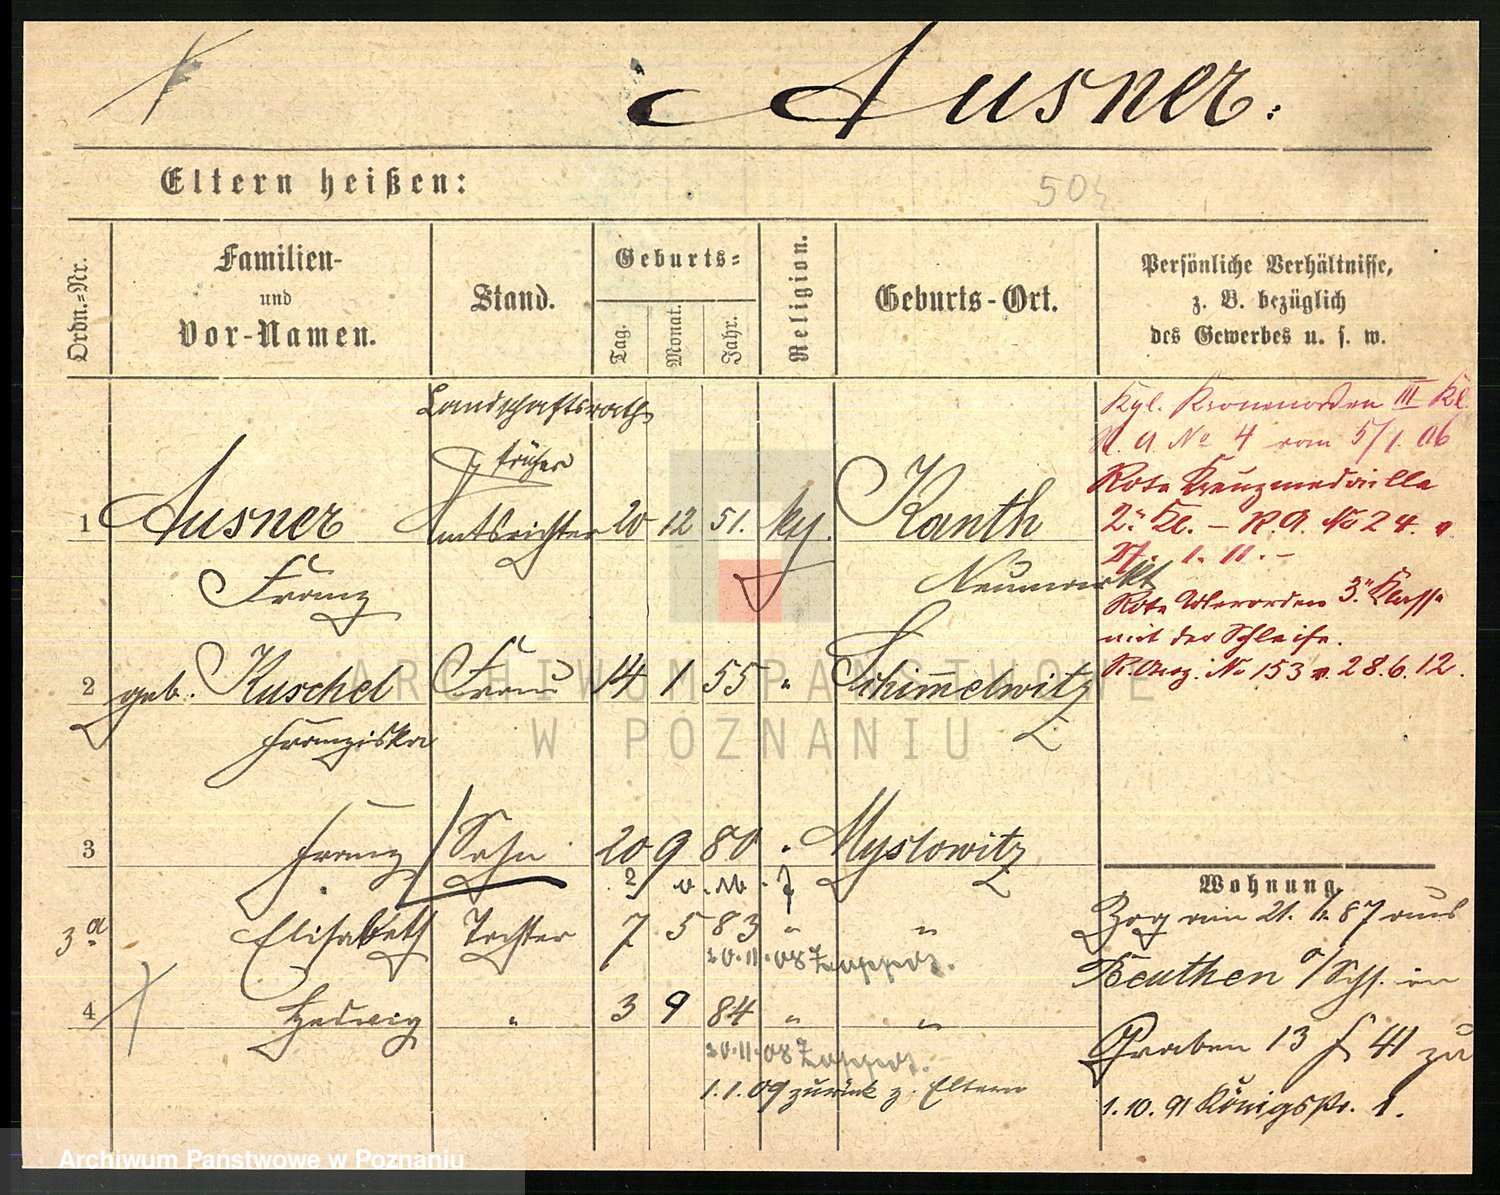 Ausner.
Eltern heißen:
504
Ordn.=Nr.
Familien-
und
Vor-Namen.
Stand.
Geburts=
Tag.
Monat.
Jahr.
Religion.
Geburts-Ort.
Persönliche Verhältnisse,
z. B. bezüglich
des Gewerbes u. s. w.
Landschaftsrath
früher
1 Ausner Amtsrichter 20 12 51. kt. Kanth
Franz Neumarkt
2 geb. Kuschel Frau 14 1 55 " Schimmelwitz
Franziska
3 Franz Sohn 20 9 80 " Myslowitz
3a Elisabeth Tochter 7 5 83 " "
20.11.08 Zoppot.
4 Hedwig " 3 9 84 " "
20.11.08 Zoppot.
1.1.09 zurück z. Eltern
Kgl. Kronenorden III Kl.
R. A No 4 vom 5/1.06
Rote Kreuzmedaille
2. Kl. – R.A. No 24. v.
27. 1. 11. –
Rote Adlerorden 3. Klasse
mit der Schleife.
R. Anz. No 153 v. 28.6.12.
Wohnung.
Zog am 21. 87 aus
Beuthen o/Schl. in
Graben 13 f. 41 zu
1.10.91 Königstr. 1.
ARCHIWUM PAŃSTWOWE
W POZNANIU
Archiwum Państwowe w Poznaniu